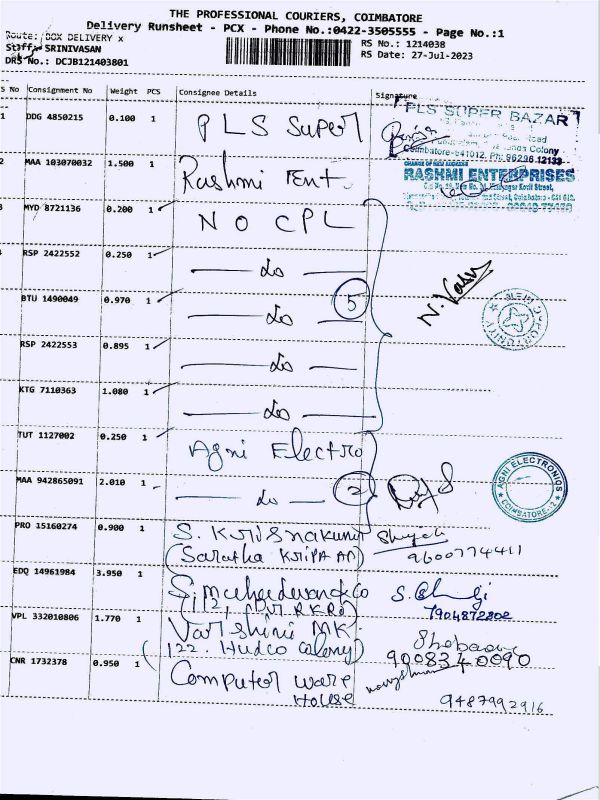 THE PROFESSIONAL COURIERS, COIMBATORE
Delivery Runsheet - PCX - Phone No.:0422-3505555 - Page No.:1
Route: BOX DELIVERY x
Staff: SRINIVASAN
DRS No.: DCJB121403801
RS No.: 1214038
RS Date: 27-Jul-2023
S No Consignment No Weight PCS Consignee Details Signature
1 DDG 4850215 0.100 1 PLS Super
PLS SUPER BAZAR
Road
Colony
Coimbatore-641012, Ph: 96296 12133
2 MAA 103070032 1.500 1 Rashmi Ent.
CHANGE OF NEW ADDRESS
RASHMI ENTERPRISES
3 MYD 8721136 0.200 1 NO CPL
RSP 2422552 0.250 1 do
BTU 1490049 0.970 1 do 5
N. Vasu
RSP 2422553 0.895 1 do
KTG 7110363 1.080 1 do
TUT 1127002 0.250 1 Agni Electro
MAA 942865091 2.010 1 do 2
AGNI ELECTRONICS
COIMBATORE-12
PRO 15160274 0.900 1 S. Krisnakumar
(Saratha Kripa AP)
9600774411
EDQ 14961984 3.950 1 S. Mahadevan & Co
(112, RKRd)
7904872202
VPL 332010806 1.770 1 Varshini MK
(122. Hudco Colony)
Shobana
9008340090
CNR 1732378 0.950 1 Computer ware
House
9487992916